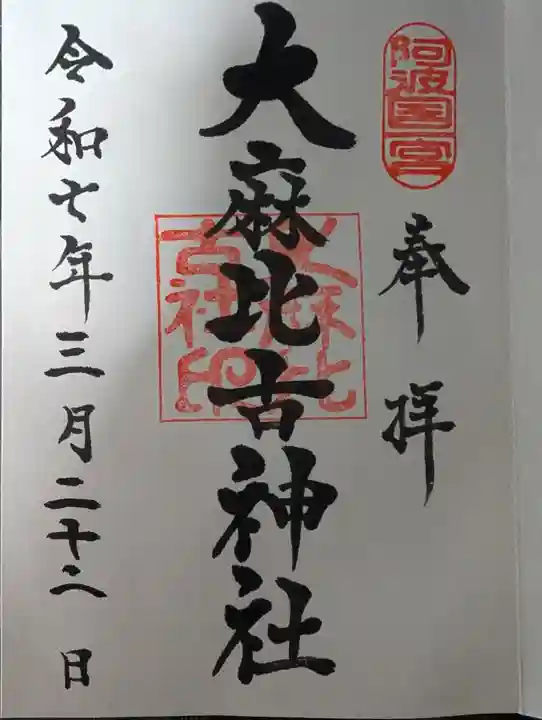 阿波国一宮
奉拝
大麻比古神社
大麻比
古社印
令和七年三月二十八日